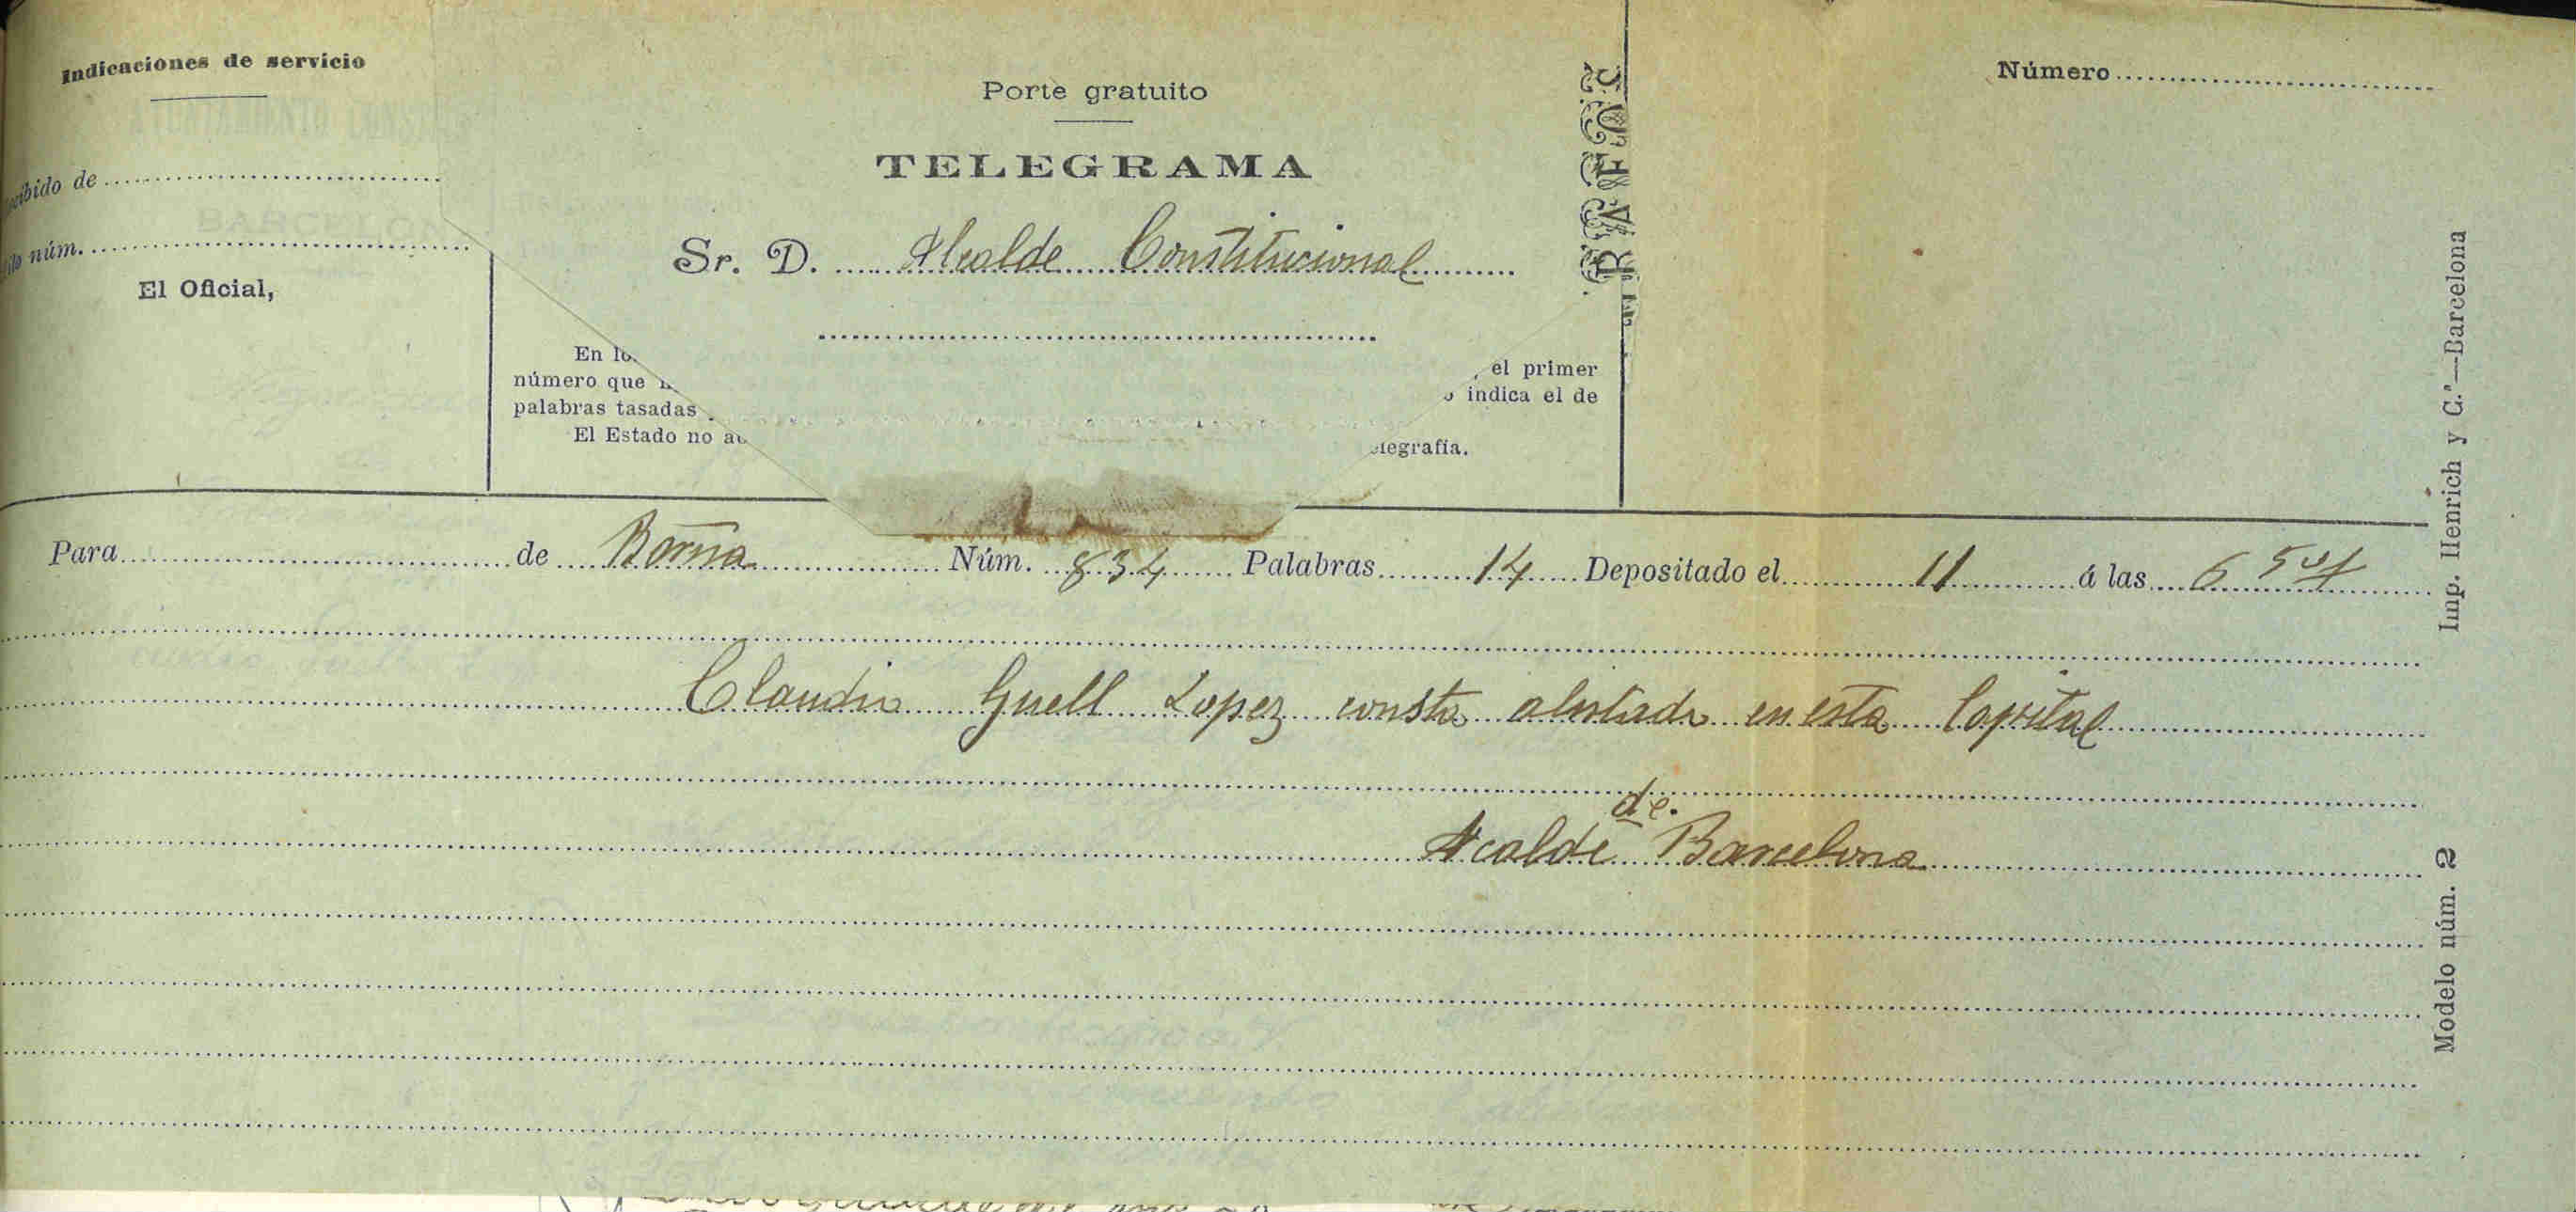 Indicaciones de servicio
AYUNTAMIENTO
BARCELON
cibido de
núm.
El Oficial,
Porte gratuito
TELEGRAMA
Sr. D. Alcalde Constitucional
Número
En lo
número que
palabras tasadas
El Estado no
el primer
indica el de
legrafia.
Para de Bᵃʳⁿᵃ Núm. 834 Palabras 14 Depositado el 11 á las 6
Claudio Guell Lopez consta alistado en esta Capital
de.
Alcalde Barcelona
Imp. Henrich y C.ª—Barcelona
Modelo núm. 2